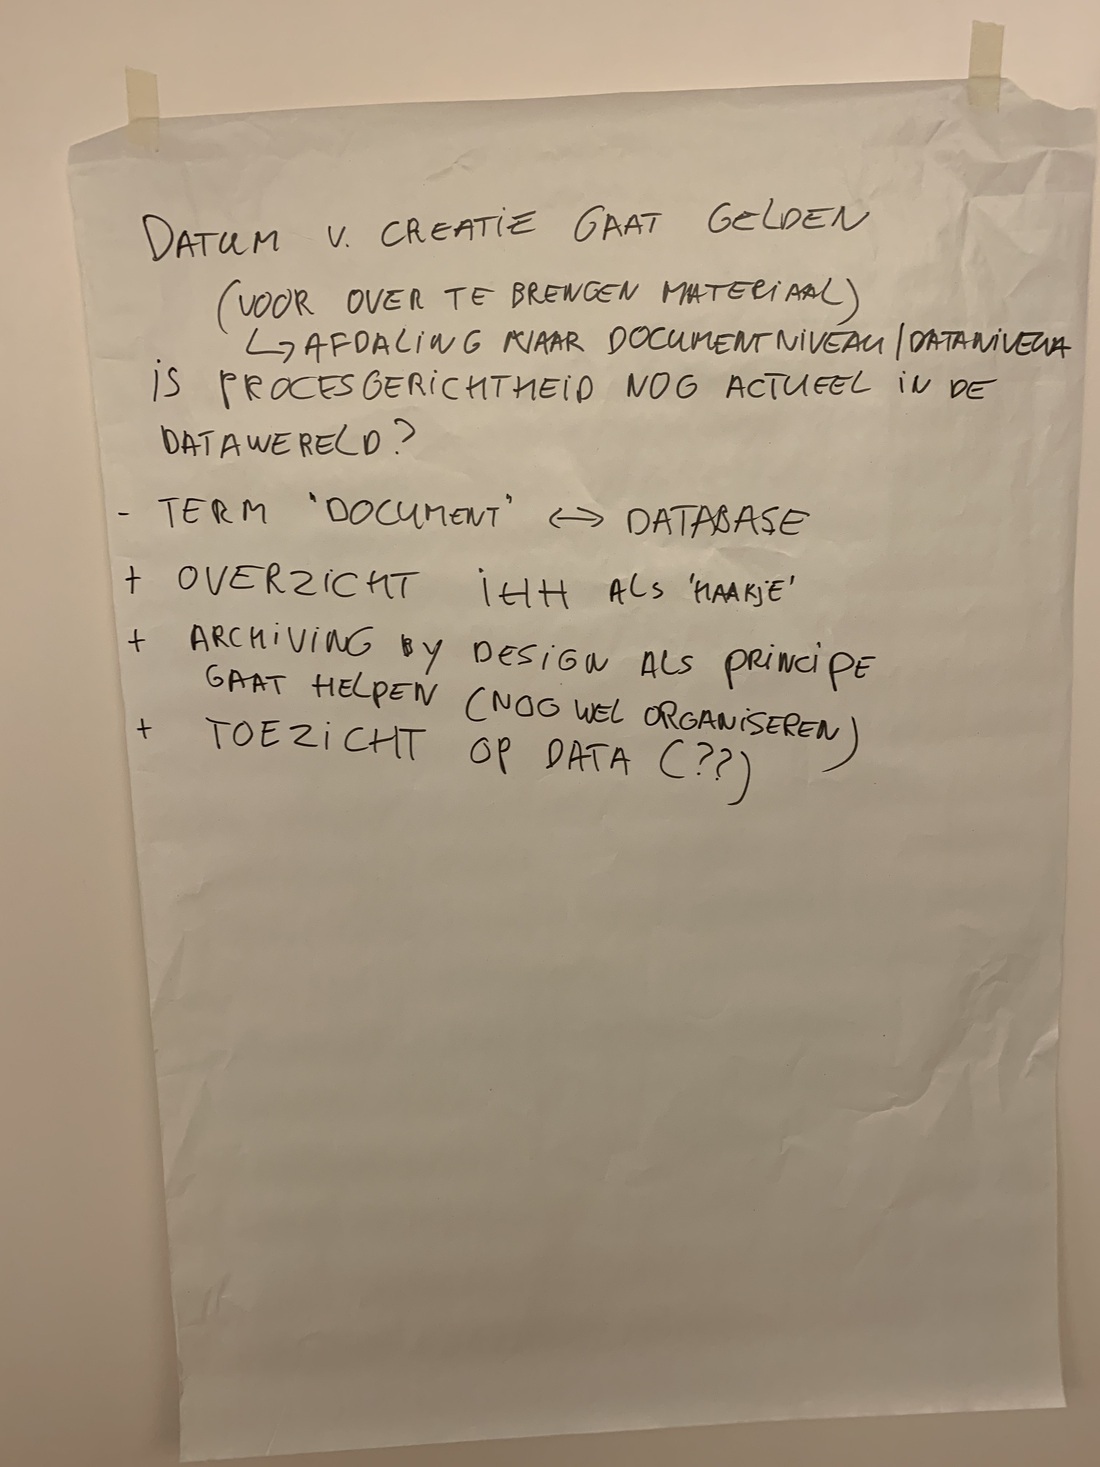 DATUM V. CREATIE GAAT GELDEN
(VOOR OVER TE BRENGEN MATERIAAL)
↳ AFDALING NAAR DOCUMENTNIVEAU/DATANIVEAU
IS PROCESGERICHTHEID NOG ACTUEEL IN DE
DATAWERELD?
- TERM 'DOCUMENT' ↔ DATABASE
+ OVERZICHT IHH ALS 'HAAKJE'
+ ARCHIVING BY DESIGN ALS PRINCIPE
GAAT HELPEN (NOG WEL ORGANISEREN)
+ TOEZICHT OP DATA (??)